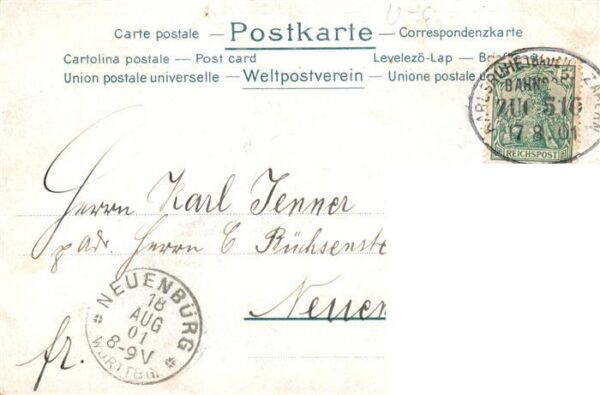 Carte postale — Postkarte — Correspondenzkarte
Cartolina postale — Post card Levelező-Lap —
Union postale universelle — Weltpostverein — Unione postale
5
BAHNP.
ZUG 516
17 8. 01
REICHSPOST
Herrn Karl Jenner
p. adr. Herrn E Büchsenste
Neuen
NEUENBÜRG
18
AUG
01
8-9V
WÜRTTBG.
fr.